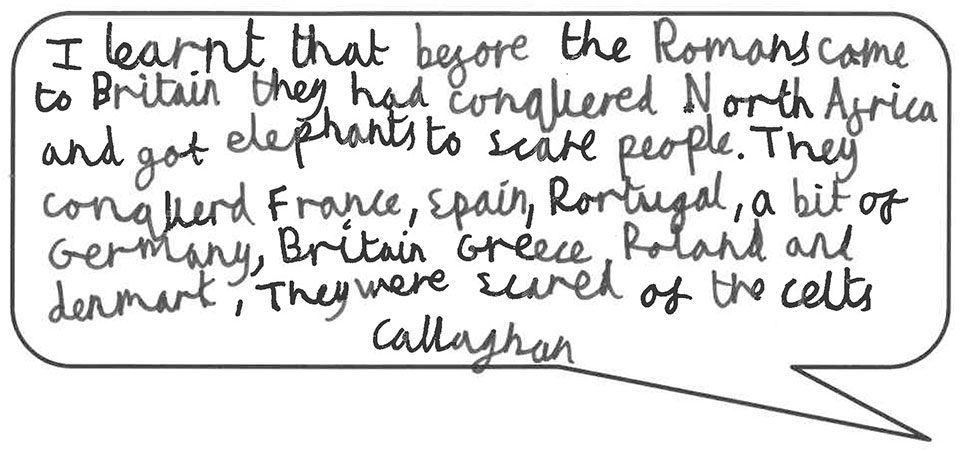 I learnt that before the Romans came
to Britain they had conquered North Africa
and got elephants to scare people. They
conquerd France, Spain, Portugal, a bit of
Germany, Britain Greece Poland and
denmark, They were scared of the celts
Callaghan